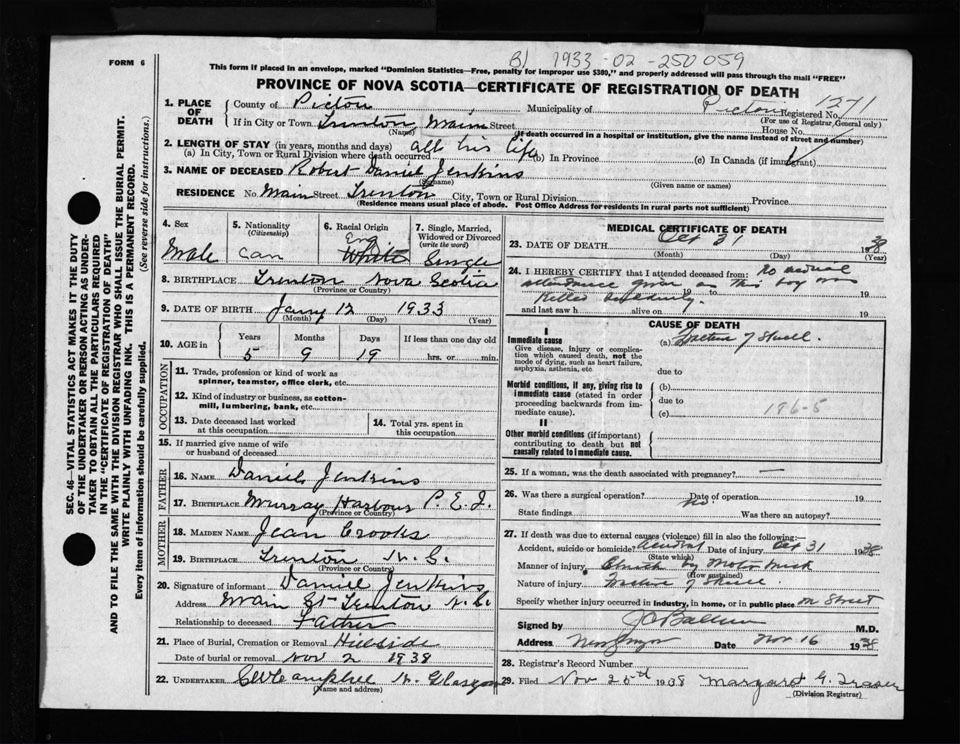 B) 1933-02-250059
FORM 6
This form if placed in an envelope, marked "Dominion Statistics—Free, penalty for improper use $300," and properly addressed will pass through the mail "FREE"
PROVINCE OF NOVA SCOTIA—CERTIFICATE OF REGISTRATION OF DEATH
1. PLACE OF DEATH
County of Pictou Municipality of Pictou Registered No. 1271
(For use of Registrar General only)
If in City or Town Trenton Main Street House No.
(Name) (If death occurred in a hospital or institution, give the name instead of street and number)
2. LENGTH OF STAY (in years, months and days)
(a) In City, Town or Rural Division where death occurred all his life (b) In Province (c) In Canada (if immigrant)
3. NAME OF DECEASED Robert Daniel Jenkins
(Surname) (Given name or names)
RESIDENCE No. Main Street Trenton City, Town or Rural Division Province
(Residence means usual place of abode. Post Office Address for residents in rural parts not sufficient)
4. Sex
Male
5. Nationality
(Citizenship)
Can
6. Racial Origin
Eng
White
7. Single, Married, Widowed or Divorced
(write the word)
Single
8. BIRTHPLACE Trenton Nova Scotia
(Province or Country)
9. DATE OF BIRTH Jany 12 1933
(Month) (Day) (Year)
10. AGE in Years Months Days If less than one day old
5 9 19 hrs. or min.
OCCUPATION
11. Trade, profession or kind of work as spinner, teamster, office clerk, etc.
12. Kind of industry or business, as cotton-mill, lumbering, bank, etc.
13. Date deceased last worked at this occupation
14. Total yrs. spent in this occupation
15. If married give name of wife or husband of deceased
FATHER
16. NAME Daniel Jenkins
17. BIRTHPLACE Murray Harbour P.E.I.
(Province or Country)
MOTHER
18. MAIDEN NAME Jean Crooks
19. BIRTHPLACE Trenton N.S.
(Province or Country)
20. Signature of informant Daniel Jenkins
Address Main St Trenton N.S.
Relationship to deceased Father
21. Place of Burial, Cremation or Removal Hillside
Date of burial or removal Nov 2 1938
22. UNDERTAKER CW Campbell N. Glasgow
(Name and address)
MEDICAL CERTIFICATE OF DEATH
23. DATE OF DEATH Oct 31 1938
(Month) (Day) (Year)
24. I HEREBY CERTIFY that I attended deceased from: No medical
attendance given as this boy was 19 to 19
killed suddenly.
and last saw h alive on 19
CAUSE OF DEATH
I
Immediate cause
Give disease, injury or complication which caused death, not the mode of dying, such as heart failure, asphyxia, asthenia, etc
(a) Fracture of Skull.
due to
Morbid conditions, if any, giving rise to immediate cause (stated in order proceeding backwards from immediate cause).
(b)
due to
(c) 176-5
II
Other morbid conditions (if important) contributing to death but not causally related to immediate cause.
25. If a woman, was the death associated with pregnancy? —
26. Was there a surgical operation? No. Date of operation 19
State findings Was there an autopsy?
27. If death was due to external causes (violence) fill in also the following:—
Accident, suicide or homicide? Accident Date of injury Oct 31 1938
(State which)
Manner of injury Struck by Motor truck
(How sustained)
Nature of injury Fracture of Skull
Specify whether injury occurred in industry, in home, or in public place on Street
Signed by M.D.
Address New Glasgow Date Nov 16 1938
28. Registrar's Record Number
29. Filed Nov 25th 1938 Margaret G. Fraser
(Division Registrar)
SEC. 46—VITAL STATISTICS ACT MAKES IT THE DUTY
OF THE UNDERTAKER OR PERSON ACTING AS UNDERTAKER
TO OBTAIN ALL THE PARTICULARS REQUIRED
IN THE "CERTIFICATE OF REGISTRATION OF DEATH"
AND TO FILE THE SAME WITH THE DIVISION REGISTRAR WHO SHALL ISSUE THE BURIAL PERMIT.
WRITE PLAINLY WITH UNFADING INK. THIS IS A PERMANENT RECORD.
Every item of information should be carefully supplied. (See reverse side for instructions.)